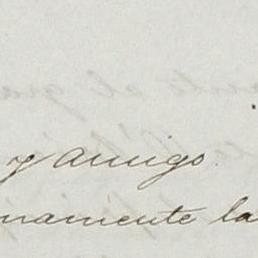 y amigo.
namente la